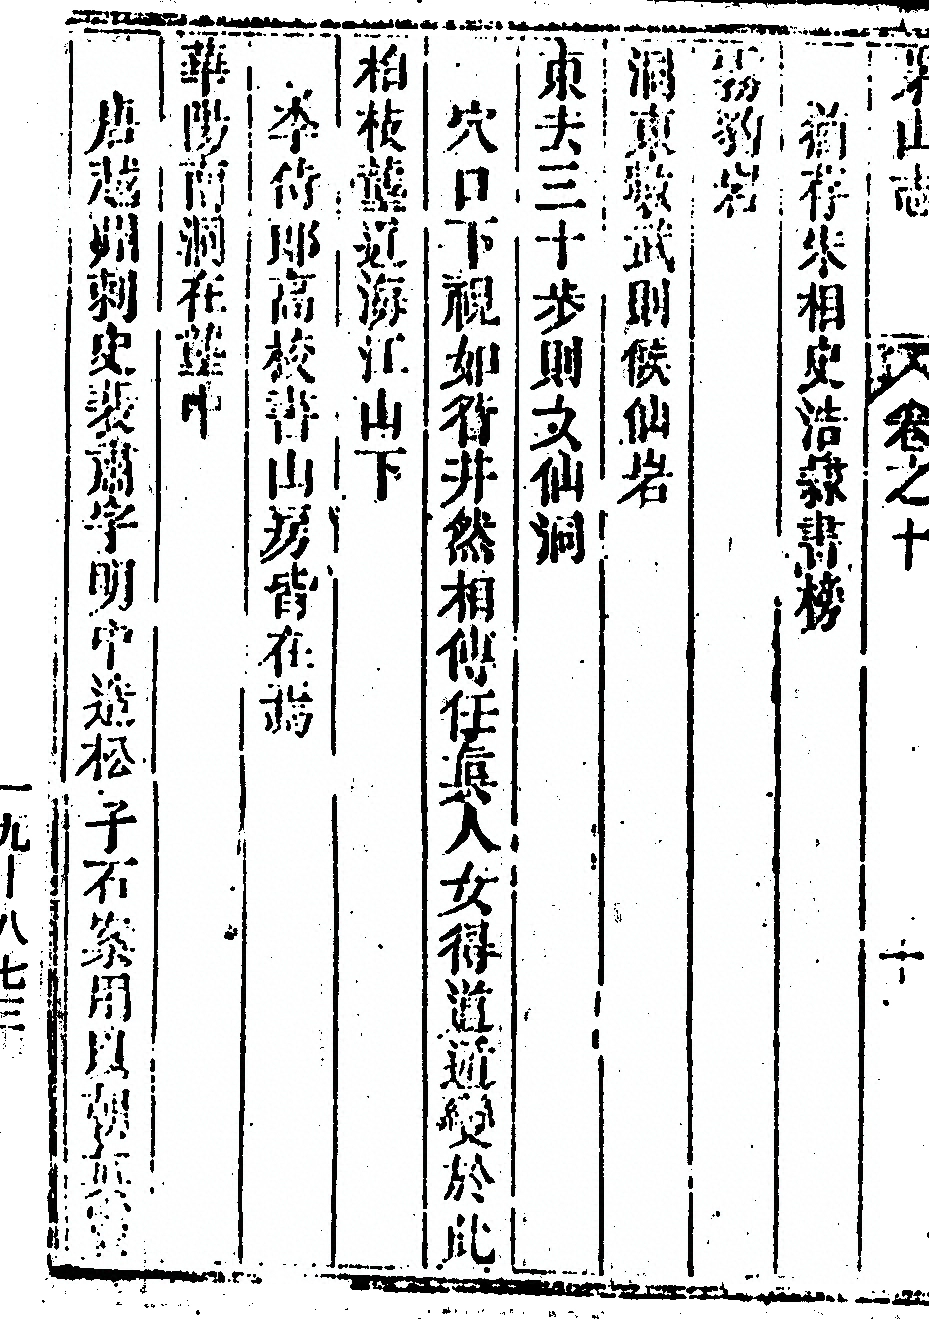 茅山志 卷之十 十
猶存朱相史浩隸書榜
霧豹岩
洞東數武則候仙岩
東去三十步則文仙洞
穴口下視如智井然相傳任真人女得道遁變於此
柏枝壟近海江山下
李侍郎高校書山房皆在焉
華陽南洞在壟中
唐越州刺史裴肅字明中遊松子石
用以朝真
一九十八七三